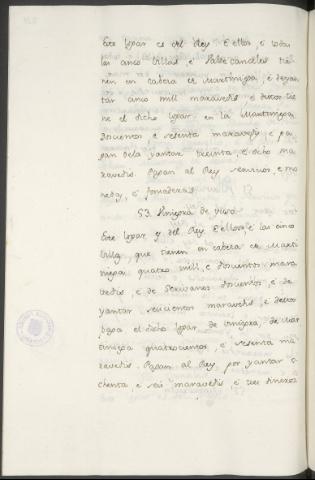 Este logar es del Rey. E ellos, é todas
las cinco Villas, é Valdecanales tie-
nen en cabeza el Martiniega, é de yan-
tar cinco mill maravedis é destos tie-
ne el dicho logar en la Martiniega
doscientos e sesenta maravedis, e pa-
gan dela yantar treinta é ocho ma-
ravedis. Pagan al Rey servicios, e mo-
neda, é fonsadera.
53. Viniegra de yuso
Este logar es del Rey. E ellos, e las cinco
Villas, que tienen en cabeza el Marti-
niega quatro mill, e doscientos mara-
vedis, e de Servianos doscientos, é de
yantar seiscientos maravedis, é destos
paga el dicho logar de Viniegra, de Mar-
tiniega quatrocientos, é sesenta ma-
ravedis. Pagan al Rey por yantar o-
chenta e seis maravedis, é tres dineros